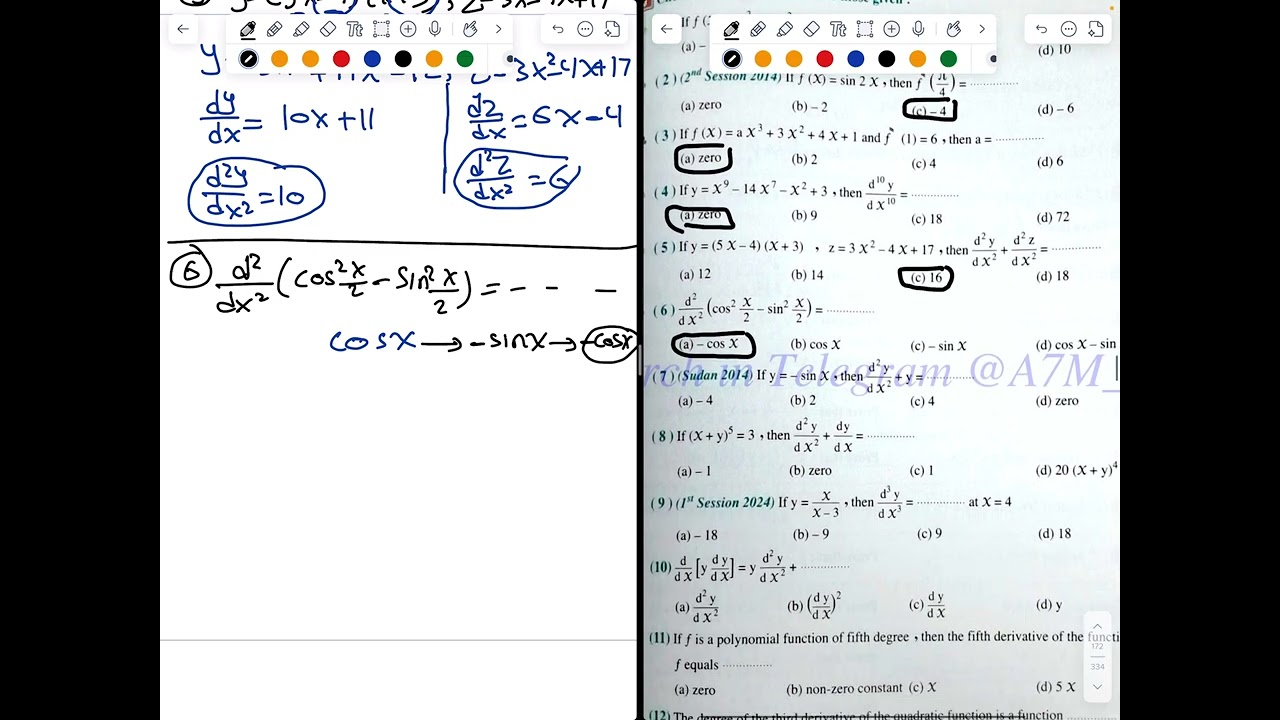 dy/dx = 10x+11
d²y/dx² = 10
-3x²-4x+17
dz/dx = 6x-4
d²z/dx² = 6
⑥ d²/dx² (cos² x/2 - sin² x/2) = - - -
cosx → -sinx → -cosx
If f
(a) – (d) 10
(2) (2nd Session 2014) If f (X) = sin 2 X , then f″ (π/4) = ..............
(a) zero (b) – 2 (c) – 4 (d) – 6
(3) If f (X) = a X³ + 3 X² + 4 X + 1 and f″ (1) = 6 , then a = ..............
(a) zero (b) 2 (c) 4 (d) 6
(4) If y = X⁹ – 14 X⁷ – X² + 3 , then d¹⁰y/dX¹⁰ = ..............
(a) zero (b) 9 (c) 18 (d) 72
(5) If y = (5 X – 4) (X + 3) , z = 3 X² – 4 X + 17 , then d²y/dX² + d²z/dX² = ..............
(a) 12 (b) 14 (c) 16 (d) 18
(6) d²/dX² (cos² X/2 – sin² X/2) = ..............
(a) – cos X (b) cos X (c) – sin X (d) cos X – sin
rch in Telegram @A7M_
(7) (Sudan 2014) If y = – sin X , then d²y/dX² + y = ..............
(a) – 4 (b) 2 (c) 4 (d) zero
(8) If (X + y)⁵ = 3 , then d²y/dX² + dy/dX = ..............
(a) – 1 (b) zero (c) 1 (d) 20 (X + y)⁴
(9) (1st Session 2024) If y = X/(X – 3) , then d³y/dX³ = .............. at X = 4
(a) – 18 (b) – 9 (c) 9 (d) 18
(10) d/dX [y dy/dX] = y d²y/dX² + ..............
(a) d²y/dX² (b) (dy/dX)² (c) dy/dX (d) y
(11) If f is a polynomial function of fifth degree , then the fifth derivative of the functi
f equals ..............
(a) zero (b) non-zero constant (c) X (d) 5 X
(12) The degree of the third derivative of the quadratic function is a function
172
334